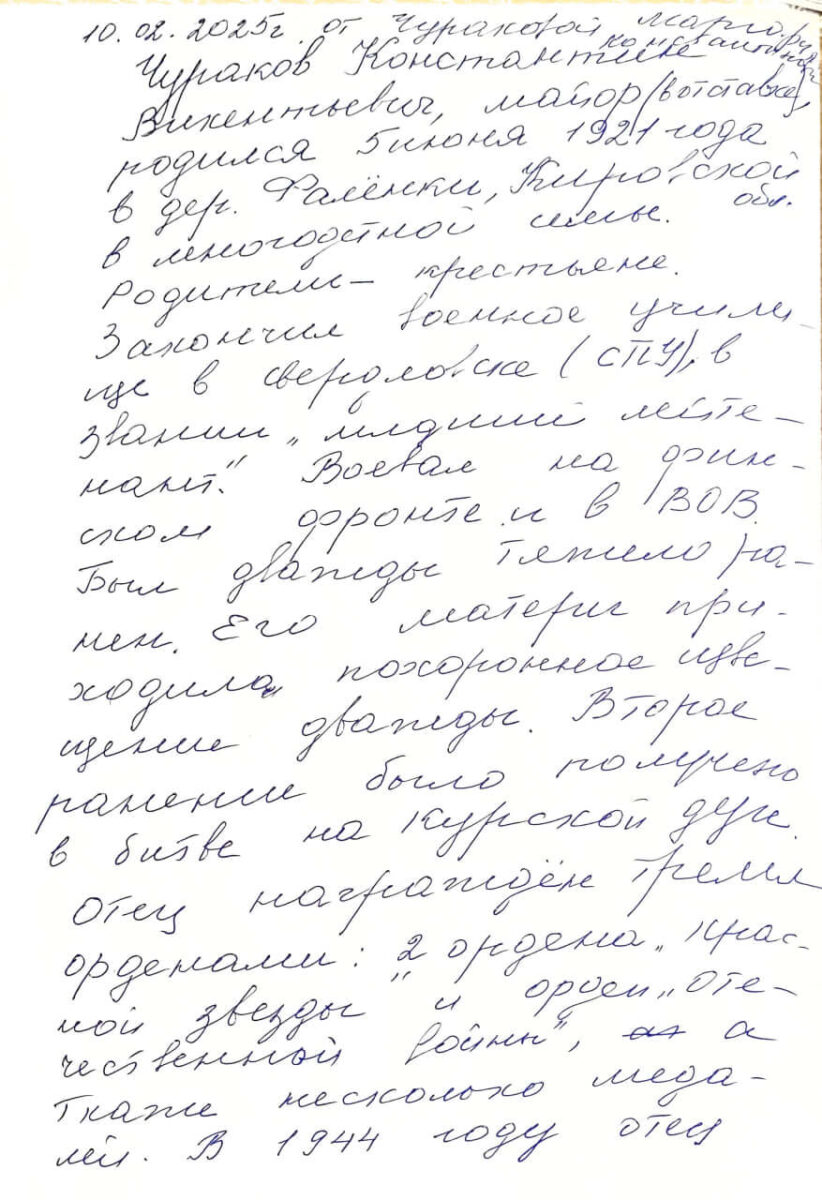 10.02.2025г. от Чураковой Маргариты
Константиновны
Чураков Константин
Викентьевич, майор (в отставке),
родился 5 июня 1921 года
в дер. Фалёнки, Кировской
обл.
в многодетной семье.
Родители – крестьяне.
Закончил военное учили-
ще в Свердловске (СПУ), в
звании „младший лейте-
нант". Воевал на фин-
ском фронте и в ВОВ.
Был дважды тяжело ра-
нен. Его матери при-
ходило похоронное изве-
щение дважды. Второе
ранение было получено
в битве на Курской дуге.
Отец награждён тремя
орденами: 2 ордена „Крас-
ной звезды" и орден „Оте-
чественной войны", а
ткаже несколько меда-
лей. В 1944 году отец